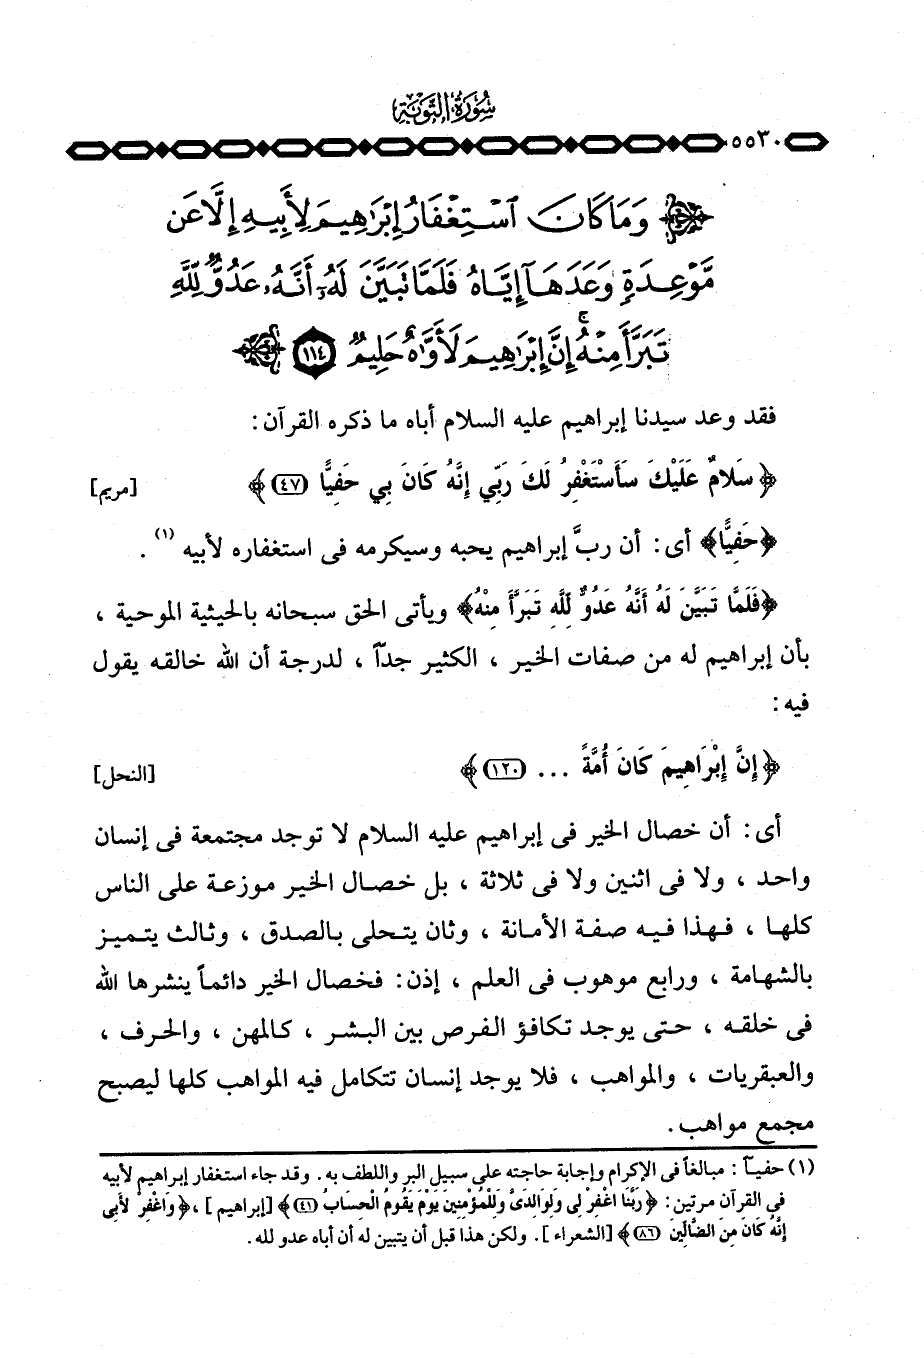 سُورَةُ التَّوْبَةِ
٥٥٣٠
وَمَا كَانَ ٱسْتِغْفَارُ إِبْرَٰهِيمَ لِأَبِيهِ إِلَّا عَن
مَّوْعِدَةٍ وَعَدَهَآ إِيَّاهُ فَلَمَّا تَبَيَّنَ لَهُۥٓ أَنَّهُۥ عَدُوٌّ لِّلَّهِ
تَبَرَّأَ مِنْهُ ۚ إِنَّ إِبْرَٰهِيمَ لَأَوَّٰهٌ حَلِيمٌ ١١٤
فقد وعد سيدنا إبراهيم عليه السلام أباه ما ذكره القرآن:
﴿ سَلامٌ عَلَيْكَ سَأَسْتَغْفِرُ لَكَ رَبِّي إِنَّهُ كَانَ بِي حَفِيًّا (٤٧) ﴾ [مريم]
﴿حَفِيًّا﴾ أى: أن ربَّ إبراهيم يحبه وسيكرمه فى استغفاره لأبيه (١) .
﴿فَلَمَّا تَبَيَّنَ لَهُ أَنَّهُ عَدُوٌّ لِلَّهِ تَبَرَّأَ مِنْهُ﴾ ويأتى الحق سبحانه بالحيثية الموحية ،
بأن إبراهيم له من صفات الخير ، الكثير جدّاً ، لدرجة أن الله خالقه يقول
فيه:
﴿ إِنَّ إِبْرَاهِيمَ كَانَ أُمَّةً ... (١٢٠) ﴾ [النحل]
أى: أن خصال الخير فى إبراهيم عليه السلام لا توجد مجتمعة فى إنسان
واحد ، ولا فى اثنين ولا فى ثلاثة ، بل خصال الخير موزعة على الناس
كلها ، فهذا فيه صفة الأمانة ، وثان يتحلى بالصدق ، وثالث يتميز
بالشهامة ، ورابع موهوب فى العلم ، إذن: فخصال الخير دائماً ينشرها الله
فى خلقه ، حتى يوجد تكافؤ الفرص بين البشر ، كالمهن ، والحرف ،
والعبقريات ، والمواهب ، فلا يوجد إنسان تتكامل فيه المواهب كلها ليصبح
مجمع مواهب.
(١) حفيـاً : مبالغاً فى الإكرام وإجابة حاجته على سبيل البر واللطف به. وقد جاء استغفار إبراهيم لأبيه
فى القرآن مرتين: ﴿ رَبَّنَا اغْفِرْ لِى وَلِوَالِدَىَّ وَلِلْمُؤْمِنِينَ يَوْمَ يَقُومُ الْحِسَابُ (٤١) ﴾ [إبراهيم] ، ﴿ وَاغْفِرْ لأَبِى
إِنَّهُ كَانَ مِنَ الضَّالِّينَ (٨٦) ﴾ [الشعراء]. ولكن هذا قبل أن يتبين له أن أباه عدو لله.